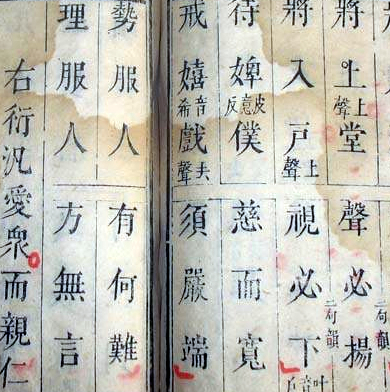 將上上聲堂聲必揚二句韻
將入戶上聲視必下叶音
待婢皮意反僕慈而寬
戒嬉音希戲聲須嚴端
勢服人有何難
理服人方無言
右衍汎愛衆而親仁